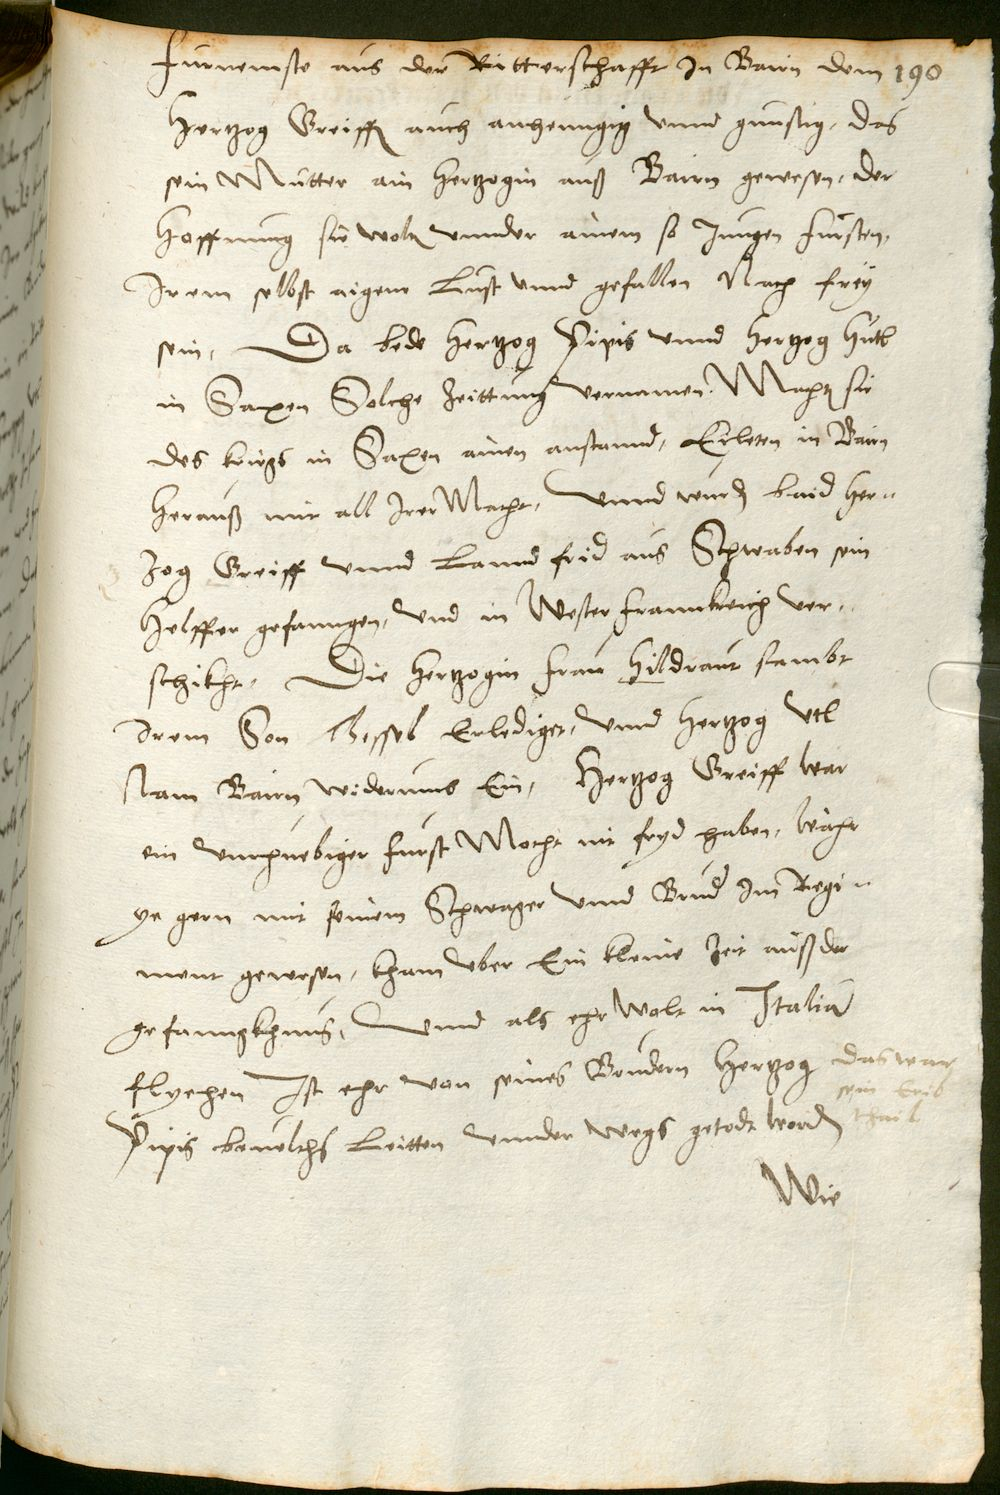 furnemste aus der Ritterschafft In Bairn dem 190
Hertzog Greiffn auch anhenngig vnnd gunstig, das
sein Mutter ain hertzogin auß Bairn gewesen, der
hoffnung sie woltn vnnder ainem so Jungen fursten,
Irem selbst aigene Lust vnnd gefallen Nach frey
sein, Da bede hertzog Pipis vnnd hertzog Hutl
in Saxen Solche Zeittung vernamen. Machtn sie
des kriegs in Saxen ainen anstannd, Eyleten in Bairn
herauß mit all Irer Macht, vnnd wurdn baid Her¬
zog Greiff vnnd Lanndfrid aus Schwaben sein
helffer gefanngen, Vnd in Wester Frannkreich ver¬
schikht. Die hertzogin frau Hildraut sambt
Irem Son Thessel Erlediget, vnnd hertzog Vtl
Nam Bairn widerumb Ein, Hertzog Greiff war
ein vnrhuebiger furst Mocht nit fryd haben, währ
ye gern mit seinem Schwager vnnd Brud Im Regi¬
ment gewesen, kham vber Ein kleine Zeit auß der
gefanngkhnus, vnnd als ehr Wolt in Italia
flyechen Ist ehr von seines Brudern hertzog das war
sein Erb
Pipis beuelchs Leitten vnnder wegs getodt wordn thail
Wie